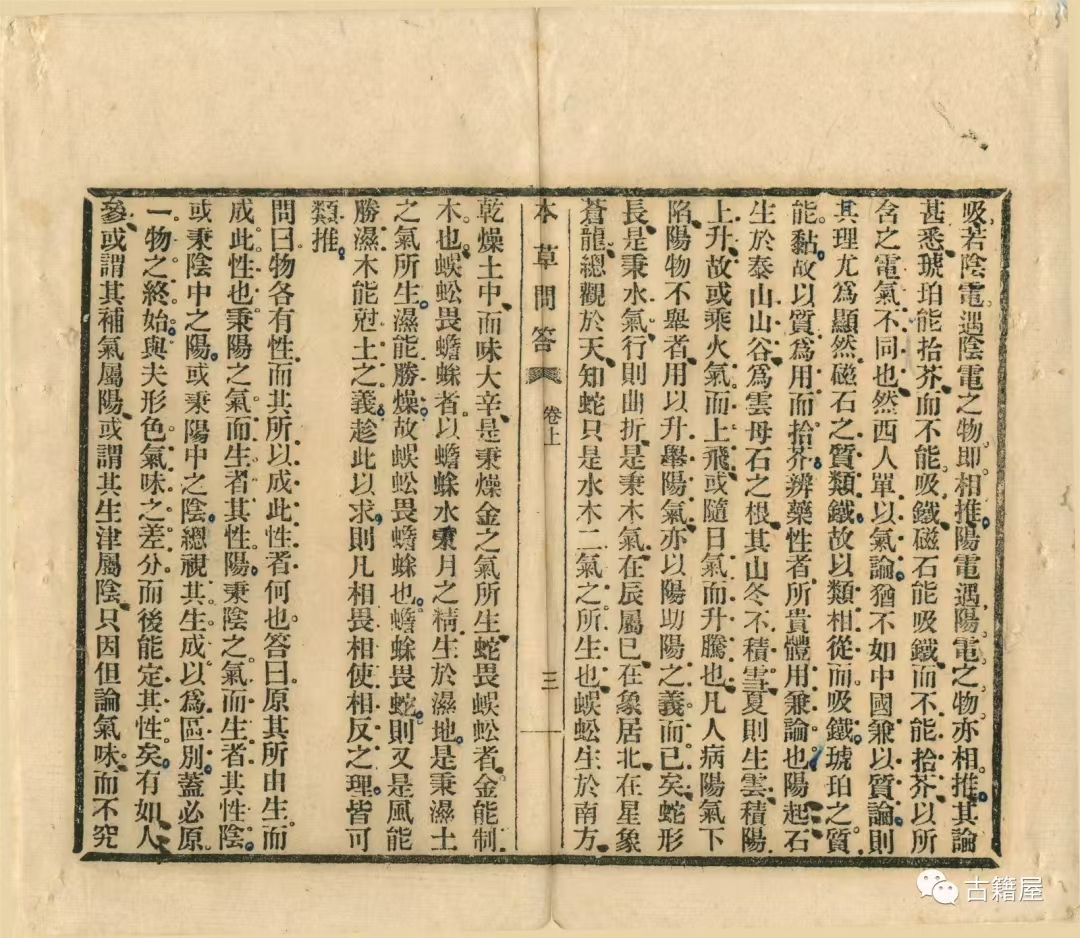 吸若陰電遇陰電之物即相推陽電遇陽電之物亦相推其論
甚悉琥珀能拾芥而不能吸鐵磁石能吸鐵而不能拾芥以所
含之電氣不同也然西人單以氣論猶不如中國兼以質論則
其理尤爲顯然磁石之質類鐵故以類相從而吸鐵琥珀之質
能黏故以質爲用而拾芥辨藥性者所貴體用兼論也陽起石
生於泰山山谷爲雲母石之根其山冬不積雪夏則生雲積陽
上升故或乘火氣而上飛或隨日氣而升騰也凡人病陽氣下
陷陽物不舉者用以升舉陽氣亦以陽助陽之義而已矣蛇形
長是秉水氣行則曲折是秉木氣在辰屬巳在象居北在星象
蒼龍總觀於天知蛇只是水木二氣之所生也蜈蚣生於南方
本草問答 卷上 三
乾燥土中而味大辛是秉燥金之氣所生蛇畏蜈蚣者金能制
木也蜈蚣畏蟾蜍者以蟾蜍水秉月之精生於濕地是秉濕土
之氣所生濕能勝燥故蜈蚣畏蟾蜍也蟾蜍畏蛇則又是風能
勝濕木能尅土之義趁此以求則凡相畏相使相反之理皆可
類推
問曰物各有性而其所以成此性者何也答曰原其所由生而
成此性也秉陽之氣而生者其性陽秉陰之氣而生者其性陰
或秉陰中之陽或秉陽中之陰總視其生成以爲區別蓋必原
一物之終始與夫形色氣味之差分而後能定其性矣有如人
參或謂其補氣屬陽或謂其生津屬陰只因但論氣味而不究
古籍屋